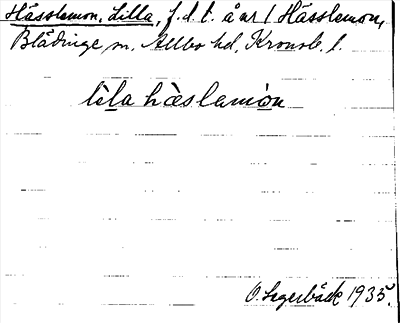 Hässlemon, Lilla, f.d.t. å nr 1 Hässlemon,
Blädinge sn, Allbo hd, Kronob. l.
lìla hæ̀slamön
O. Lagerbäck 1935.